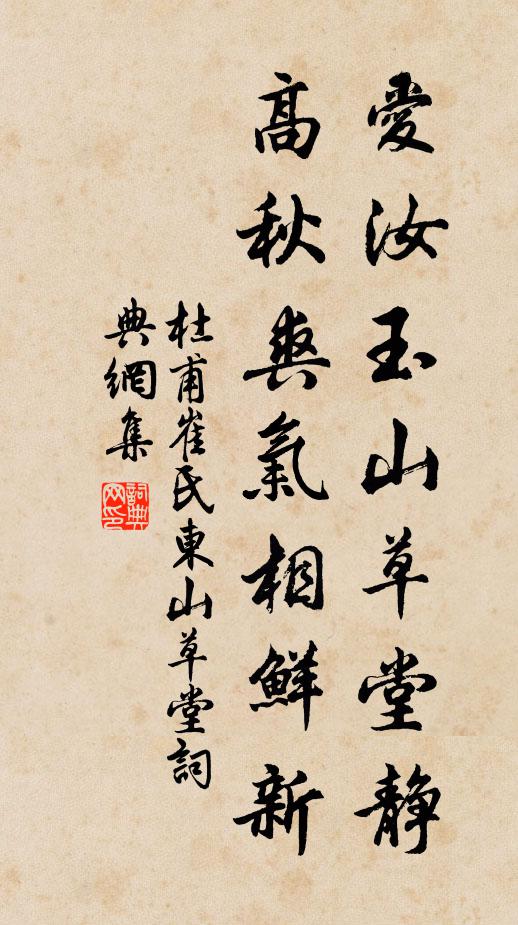 愛汝玉山草堂靜
高秋爽氣相鮮新
杜甫崔氏東山草堂詞
典網集
詞典
网印